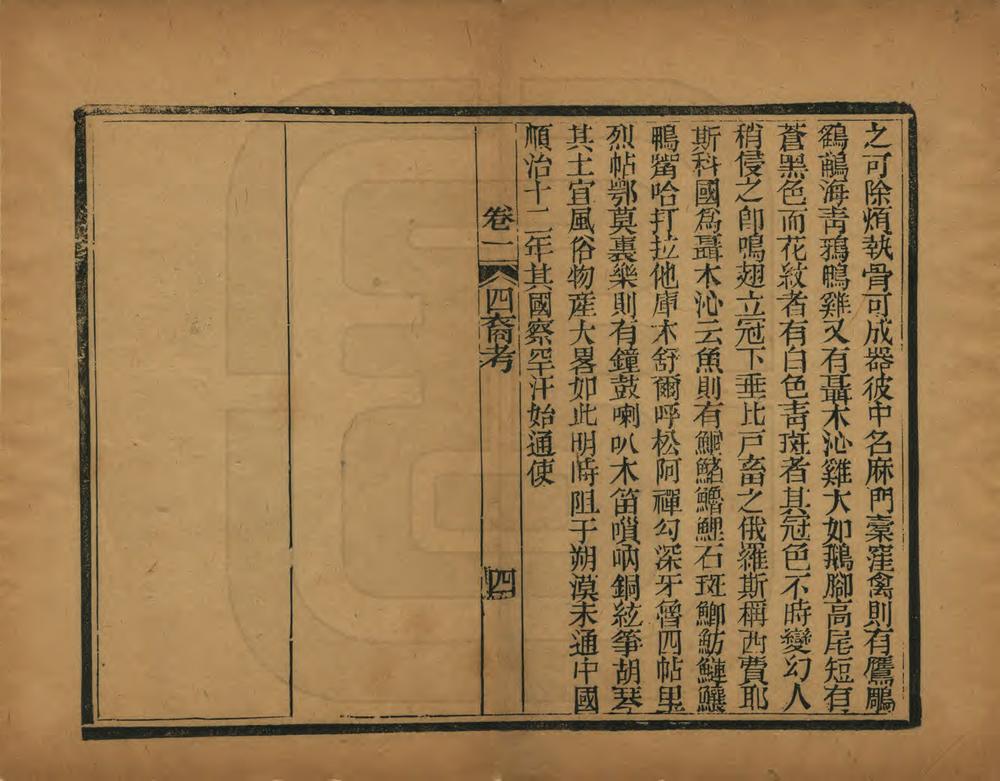 之可除煩執骨可成器彼中名麻門橐窪禽則有鷹鵰
鶴鶓海靑鴉鴨雞又有聶木沁雞大如鵝腳高尾短有
蒼黑色而花紋者有白色靑斑者其冠色不時變幻人
稍侵之卽鳴翅立冠下垂比戶畜之俄羅斯稱西費耶
斯科國爲聶木沁云魚則有鱘鰉鯉石斑鯽魴鰱
鴨畱哈打拉他庫木舒爾呼松阿禪勾深牙魯四帖里
烈帖鄂莫裏樂則有鐘鼓喇叭木笛嗩吶銅絃箏胡琴
其土宜風俗物産大畧如此明時阻于朔漠未通中國
順治十二年其國察罕汗始通使
卷一 四裔考 四